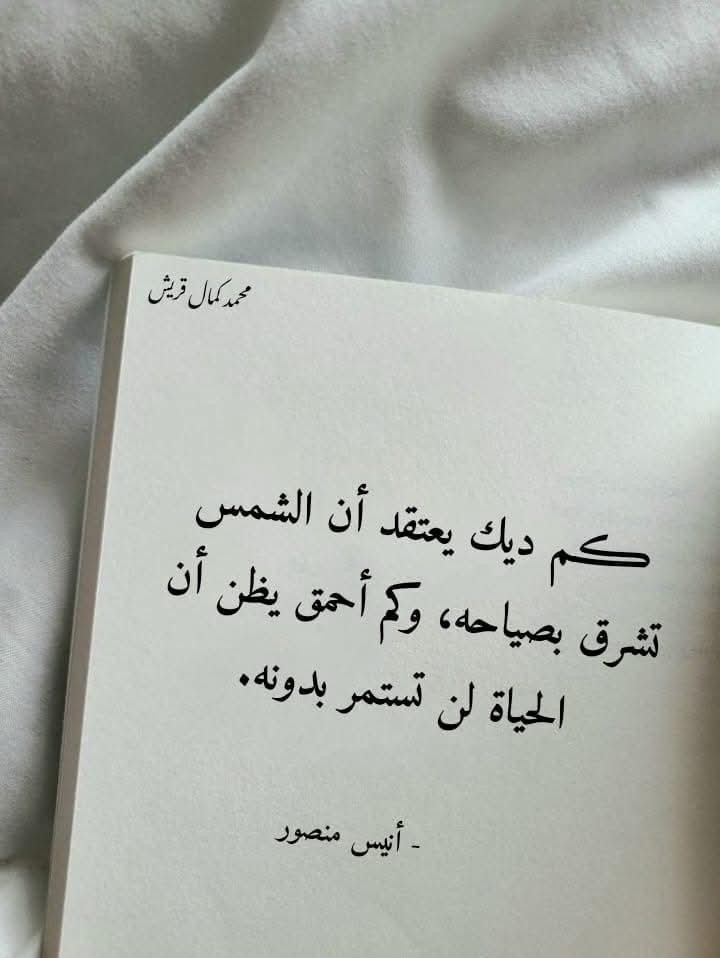 محمد كمال قريش
كم ديك يعتقد أن الشمس
تشرق بصياحه، وكم أحمق يظن أن
الحياة لن تستمر بدونه.
- أنيس منصور